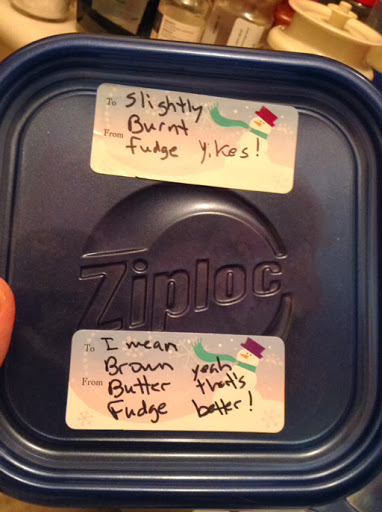 To Slightly
Burnt
From fudge yikes!
Ziploc
To I mean
Brown yeah
From Butter that's
Fudge better!